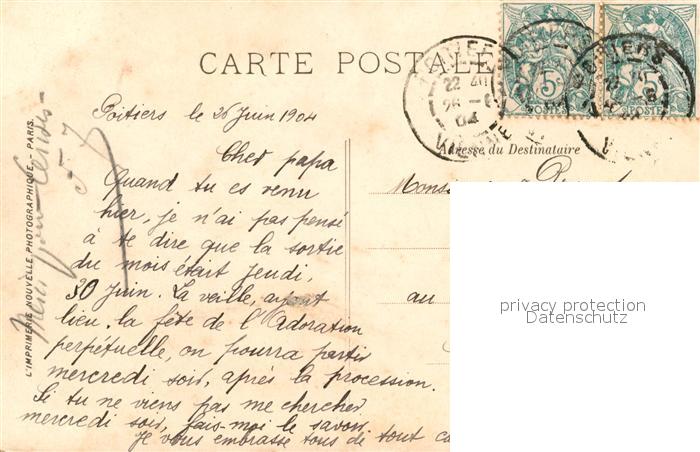 CARTE POSTALE
Poitiers le 26 Juin 1904
Cher papa
Quand tu es venu
hier, je n'ai pas pensé
à te dire que la sortie
du mois étant jeudi,
30 Juin. La veille, ayant
lieu la fête de l'Adoration
perpétuelle, on pourra partir
mercredi soir, après la procession.
Si tu ne viens pas me chercher
mercredi soir, fais-moi le savoir
Je vous embrasse tous de tout
Adresse du Destinataire
au
L'IMPRIMERIE NOUVELLE PHOTOGRAPHIQUE. - PARIS.
5 5
POSTE
22 40
26 -6
04
privacy protection
Datenschutz